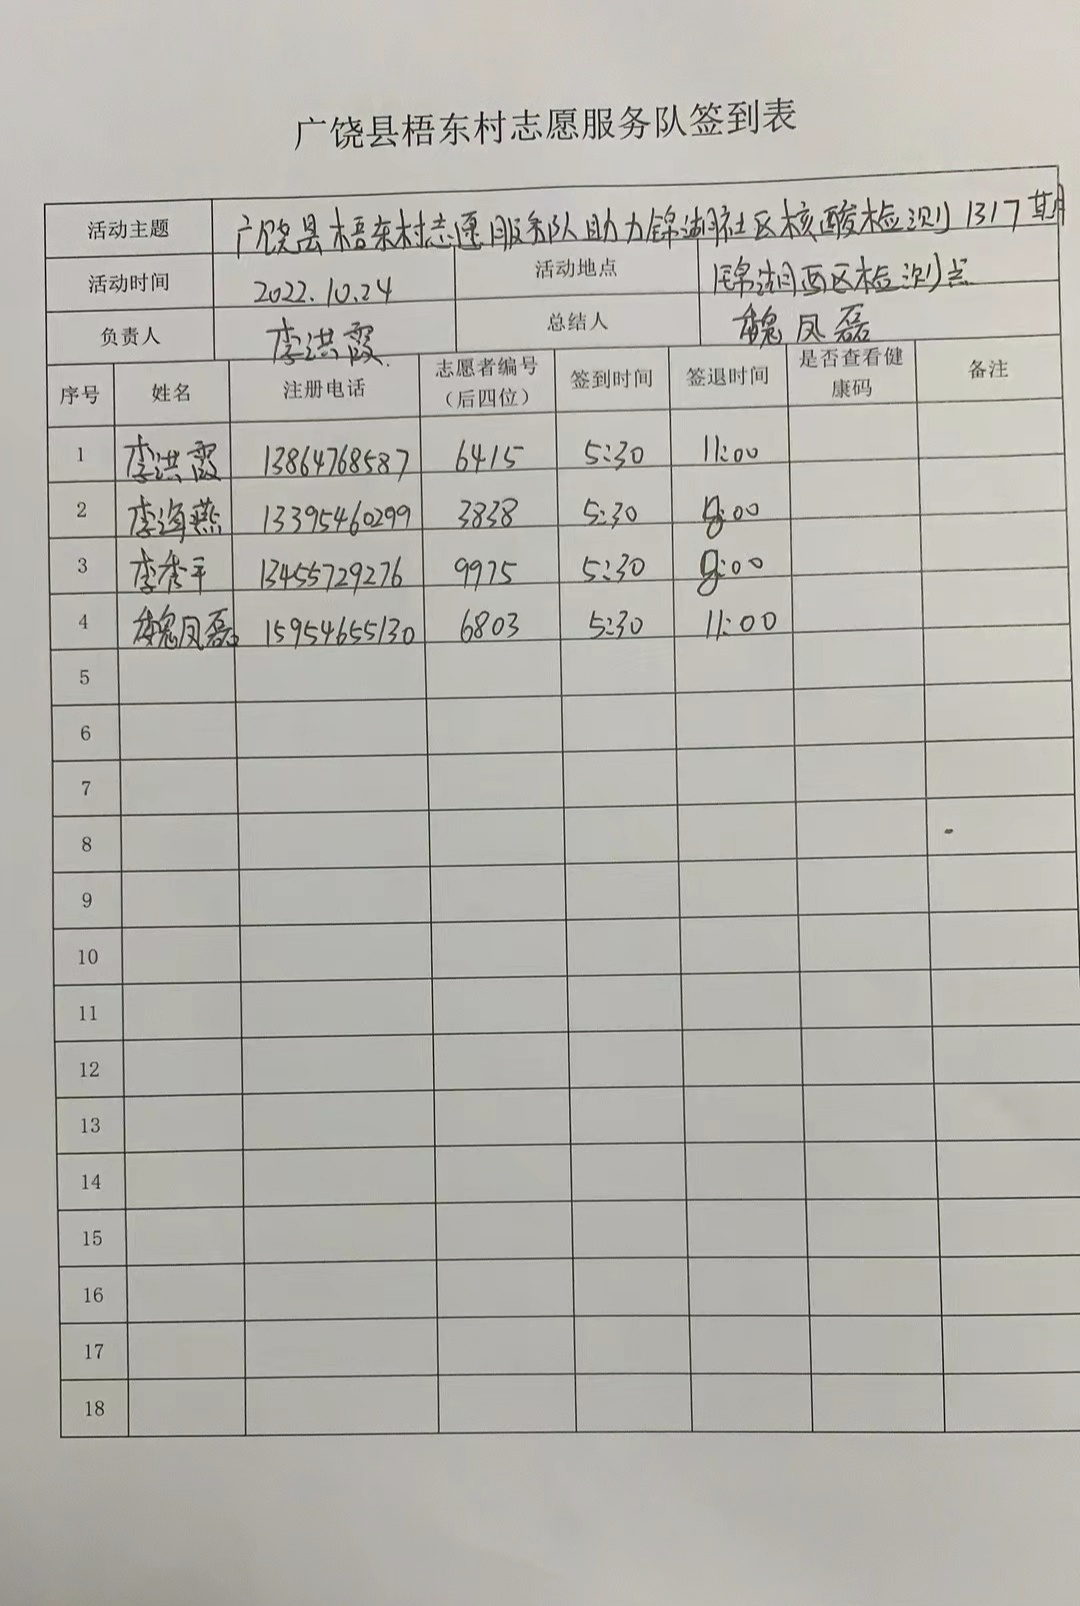 广饶县梧东村志愿服务队签到表
活动主题 广饶县梧东村志愿服务队助力锦湖社区核酸检测1317期
活动时间 2022.10.24 活动地点 锦湖西区检测点
负责人 李洪霞 总结人 魏凤磊
序号 姓名 注册电话 志愿者编号（后四位） 签到时间 签退时间 是否查看健康码 备注
1 李洪霞 13864768587 6415 5:30 11:00
2 李海燕 13395460299 3838 5:30 :00
3 李秀平 13455729276 9975 5:30 :00
4 魏凤磊 15954655130 6803 5:30 11:00
5
6
7
8
9
10
11
12
13
14
15
16
17
18